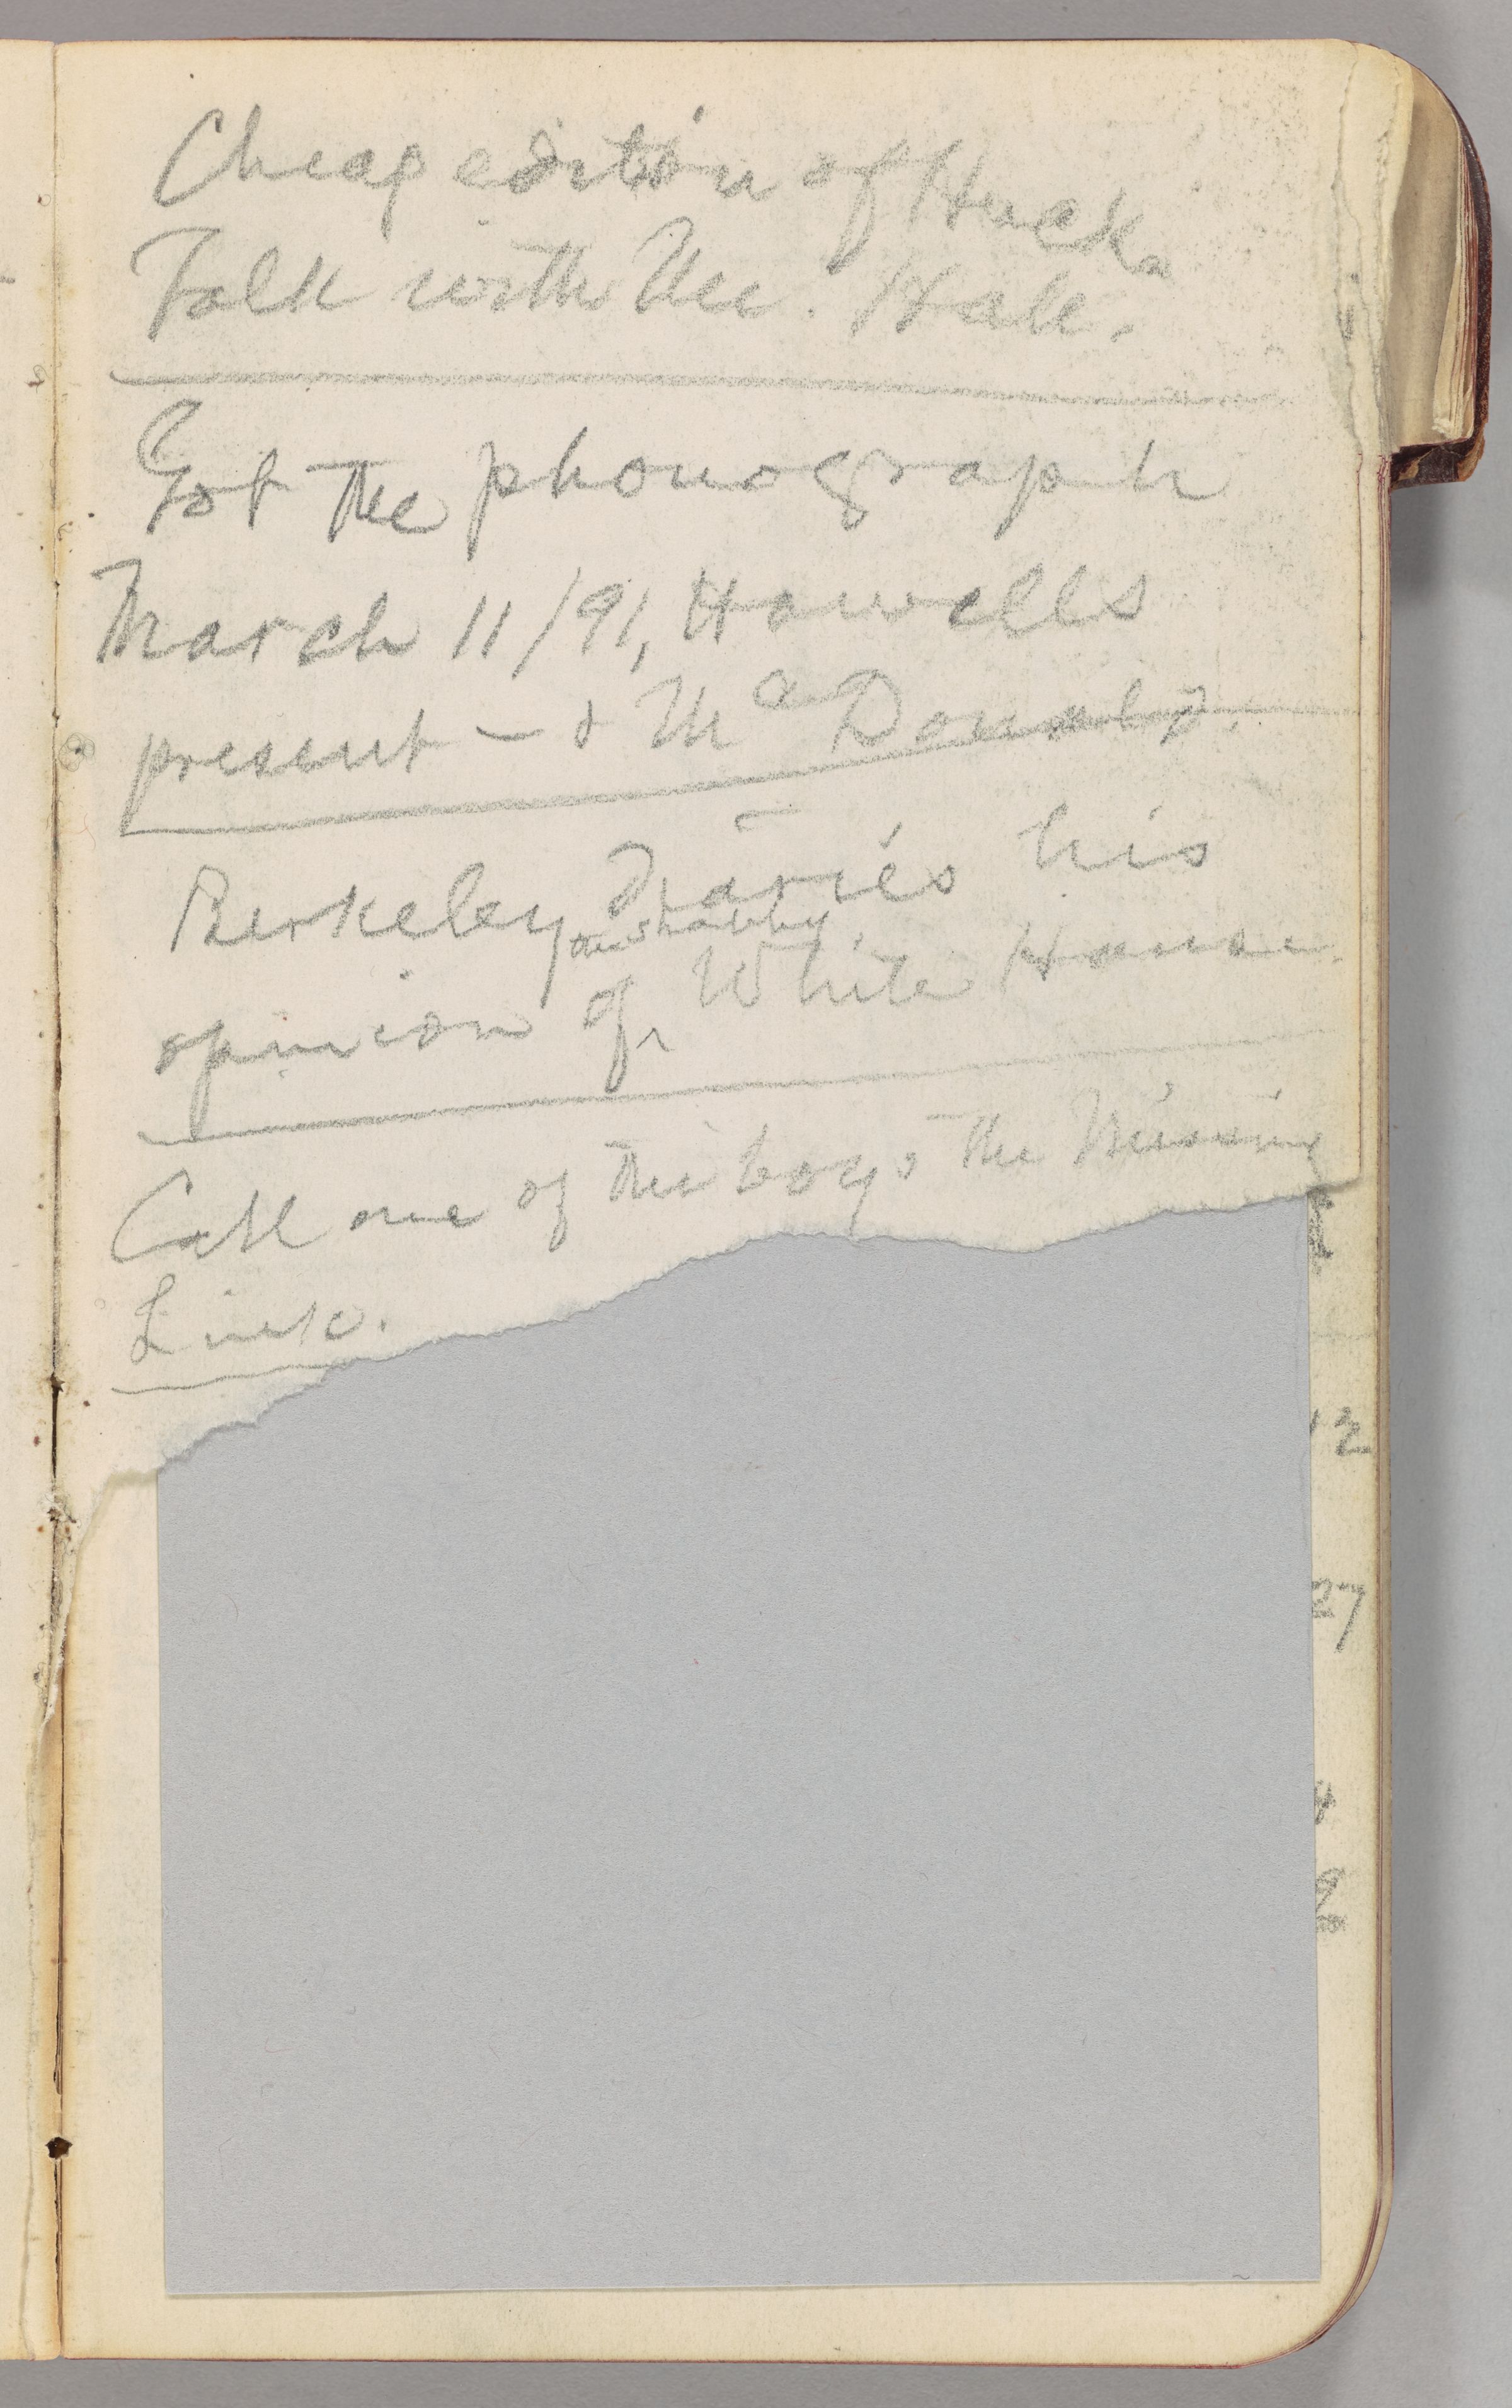 Cheap edition of Huck.
Talk with Mr. Hall.
Got the phonograph
March 11/91, Howells
present — & McDonald.
Berkeley Diaries his
the shabby
opinion of ^ White House.
Call one of the boys the Missing
Link.
12
27
4
9